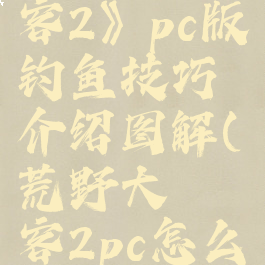 客2》pc版
钓鱼技巧
介绍图解(
荒野大
客2pc怎么